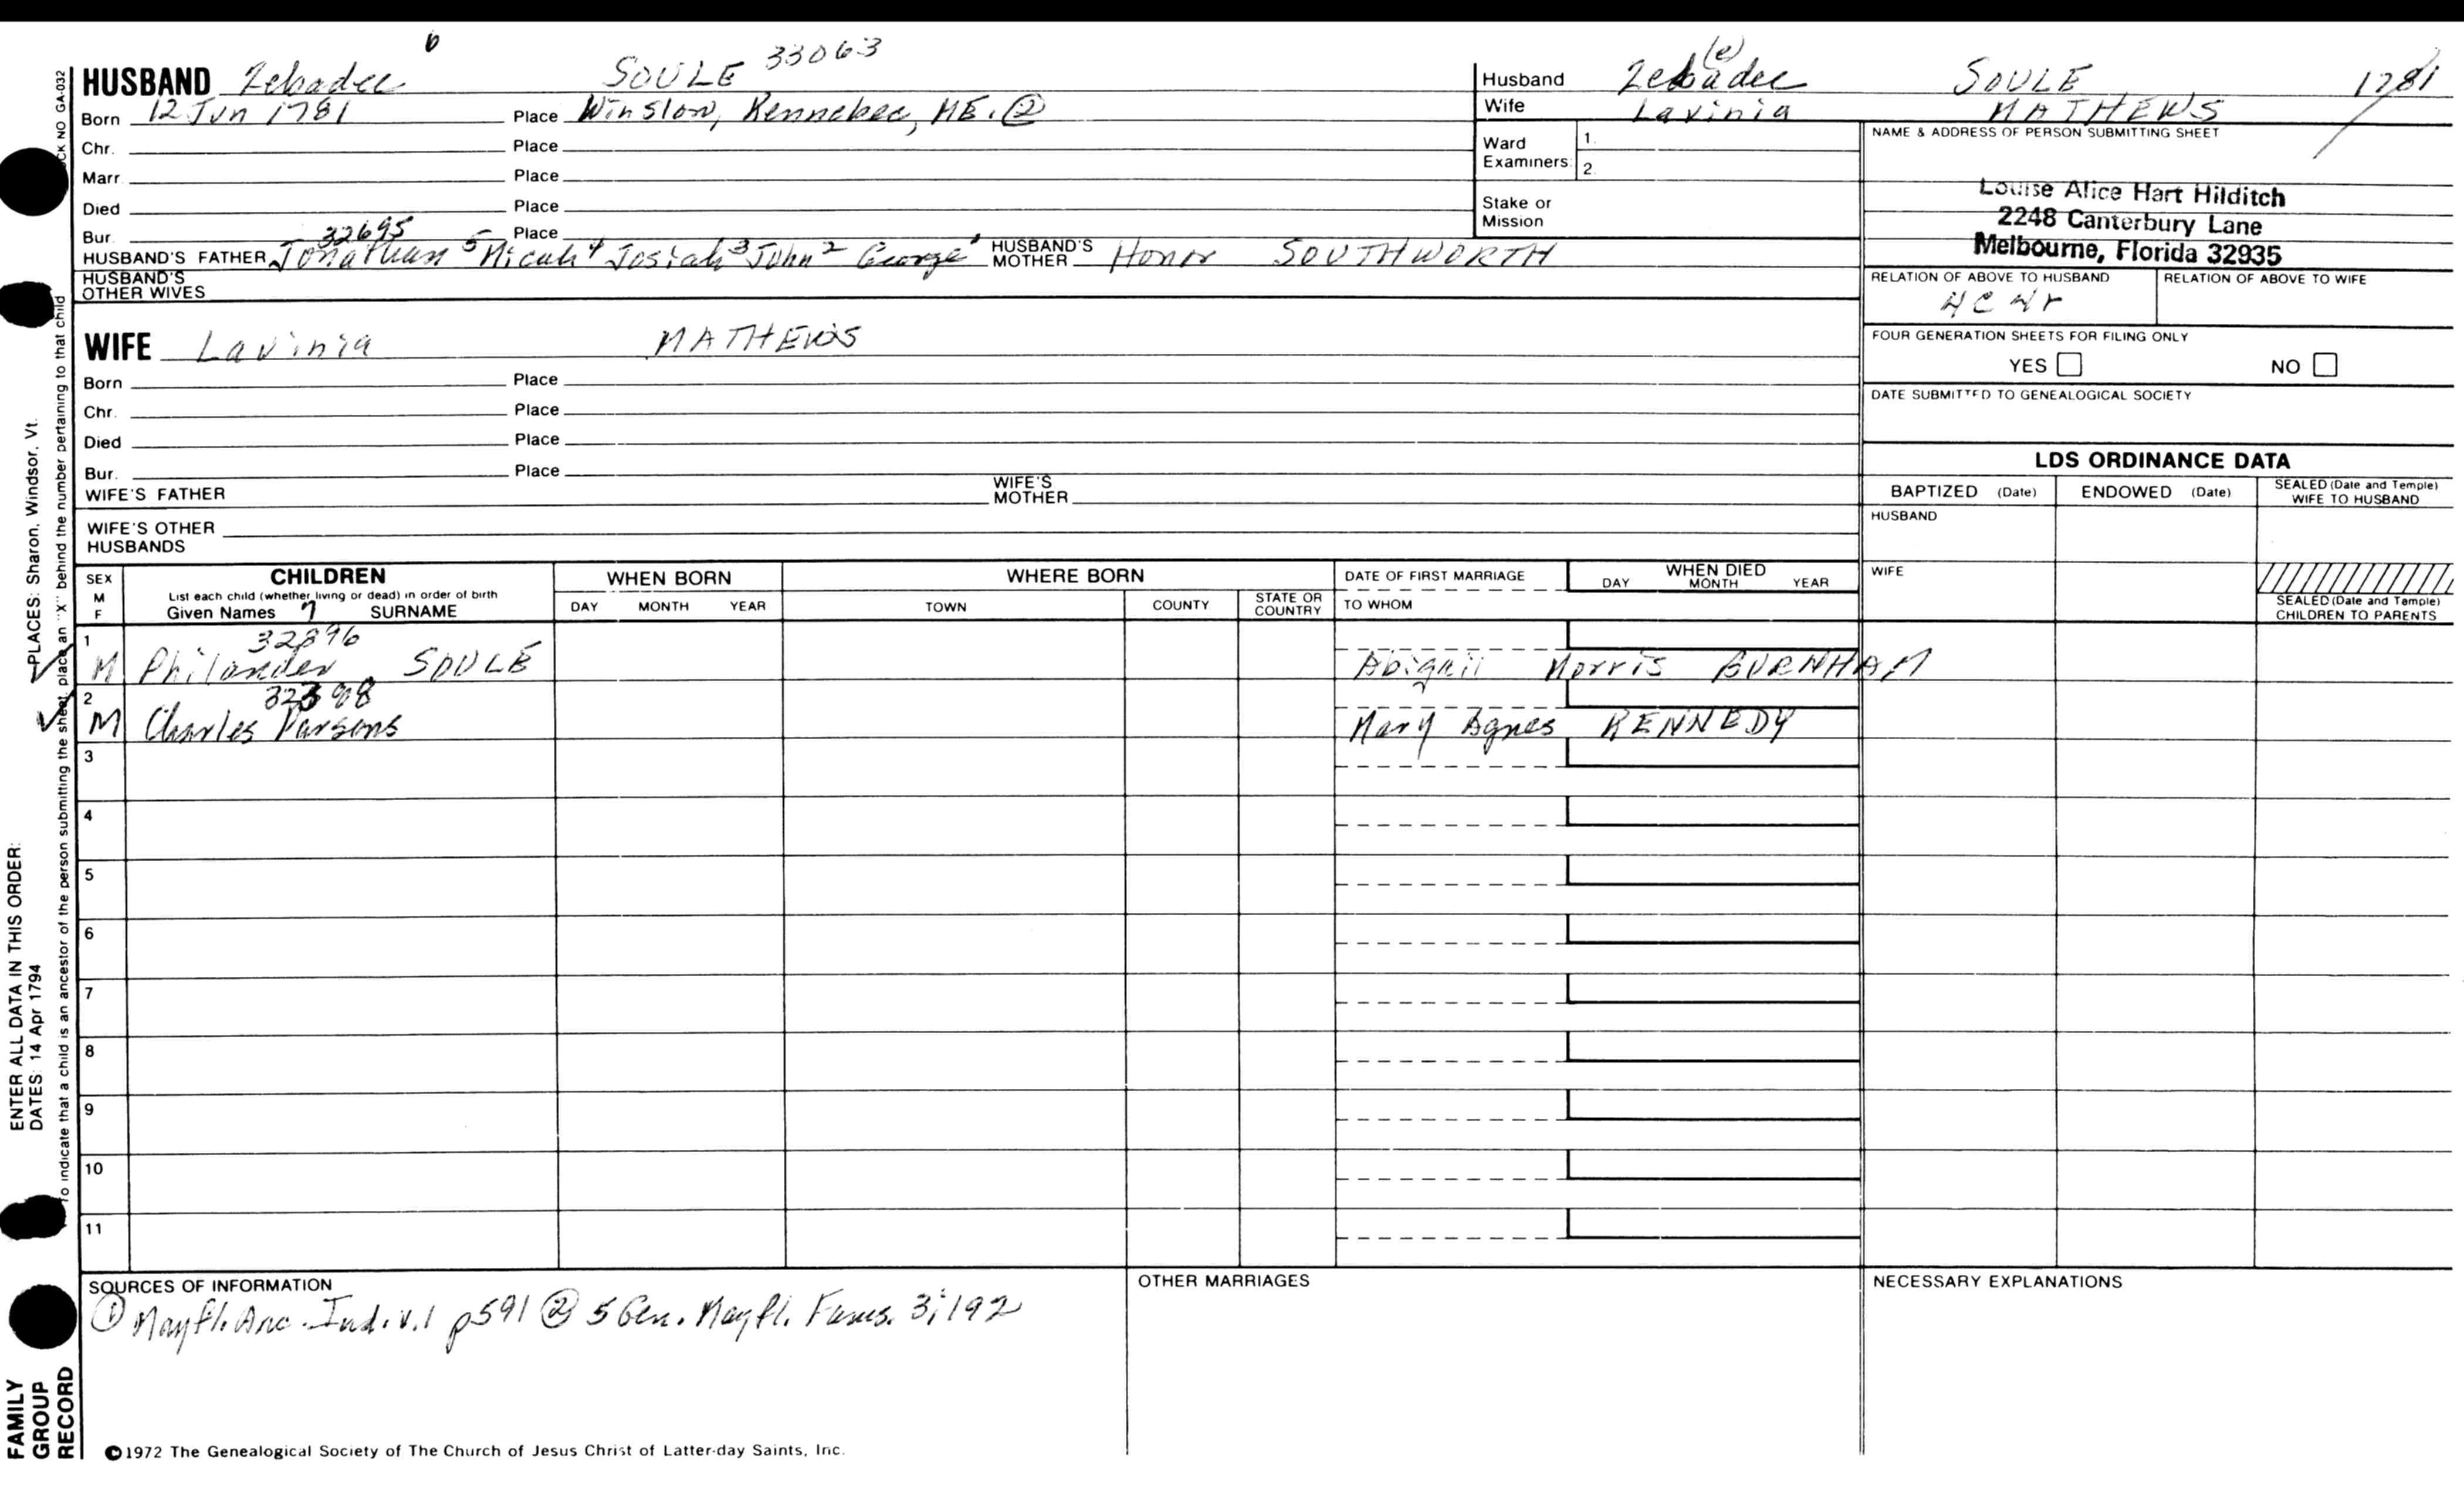 HUSBAND Zebadee 6 SOULE 33063
Born 12 Jun 1781 Place Winslow, Kennebec, ME. ②
Chr. Place
Marr. Place
Died Place
Bur. Place
32695
HUSBAND'S FATHER Jonathan 5 Micah 4 Josiah 3 John 2 George 1 HUSBAND'S MOTHER Honor SOUTHWORTH
HUSBAND'S OTHER WIVES
WIFE Lavinia MATHEWS
Born Place
Chr. Place
Died Place
Bur. Place
WIFE'S FATHER WIFE'S MOTHER
WIFE'S OTHER HUSBANDS
Husband Zebadee (e) SOULE 1781
Wife Lavinia MATHEWS
Ward Examiners: 1. 2.
Stake or Mission
NAME & ADDRESS OF PERSON SUBMITTING SHEET
Louise Alice Hart Hilditch
2248 Canterbury Lane
Melbourne, Florida 32935
RELATION OF ABOVE TO HUSBAND RELATION OF ABOVE TO WIFE
FOUR GENERATION SHEETS FOR FILING ONLY
YES NO
DATE SUBMITTED TO GENEALOGICAL SOCIETY
LDS ORDINANCE DATA
BAPTIZED (Date) ENDOWED (Date) SEALED (Date and Temple) WIFE TO HUSBAND
HUSBAND
WIFE
SEALED (Date and Temple) CHILDREN TO PARENTS
SEX M F
CHILDREN
List each child (whether living or dead) in order of birth
Given Names 7 SURNAME
WHEN BORN
DAY MONTH YEAR
WHERE BORN
TOWN COUNTY STATE OR COUNTRY
DATE OF FIRST MARRIAGE
TO WHOM
WHEN DIED
DAY MONTH YEAR
1 32896
M Philander SOULE Abigail Morris BURNHAM
2
M Charles Parsons Mary Agnes KENNEDY
3
4
5
6
7
8
9
10
11
SOURCES OF INFORMATION
① Mayfl. Anc. Ind. v.1 p591 ② 5 Gen. Mayfl. Fams. 3:192
OTHER MARRIAGES
NECESSARY EXPLANATIONS
©1972 The Genealogical Society of The Church of Jesus Christ of Latter-day Saints, Inc.
FAMILY GROUP RECORD
ENTER ALL DATA IN THIS ORDER:
DATES: 14 Apr 1794 PLACES: Sharon, Windsor, Vt.
To indicate that a child is an ancestor of the person submitting the sheet, place an "X" behind the number pertaining to that child
NO GA-032